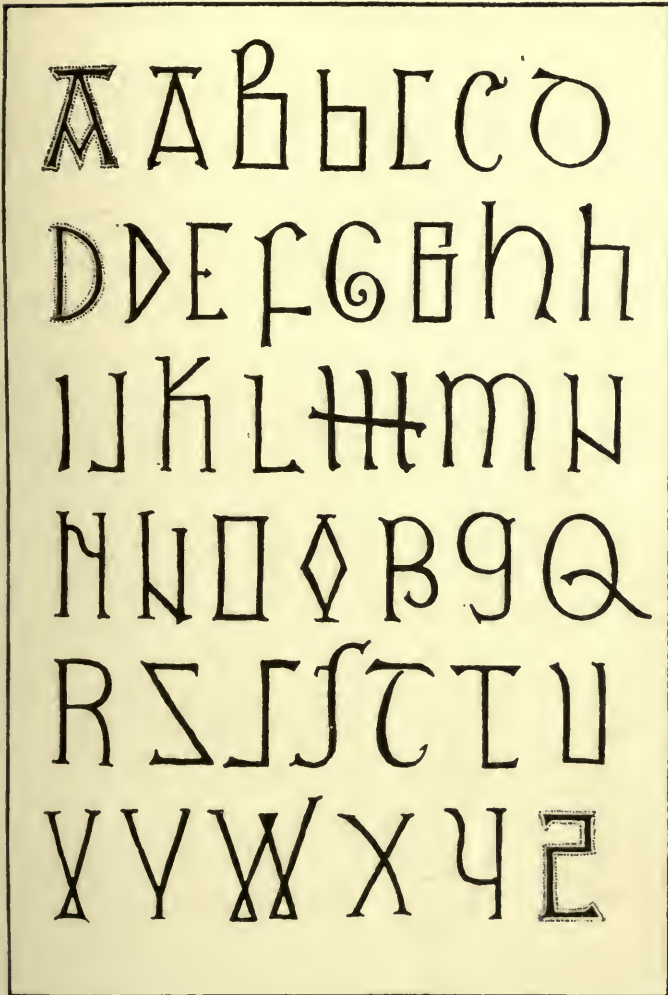 A A B b C C D
D D E F G G h h
I J K L M m N
N N O O P q Q
R S S ſ T T U
V V W X Y Z